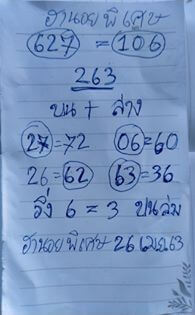 ฮานอยพิเศษ
627 = 106
263
บน + ล่าง
27=72 06=60
26=62 63=36
วิ่ง 6 = 3 บนล่าง
ฮานอยพิเศษ 26 เมย.63